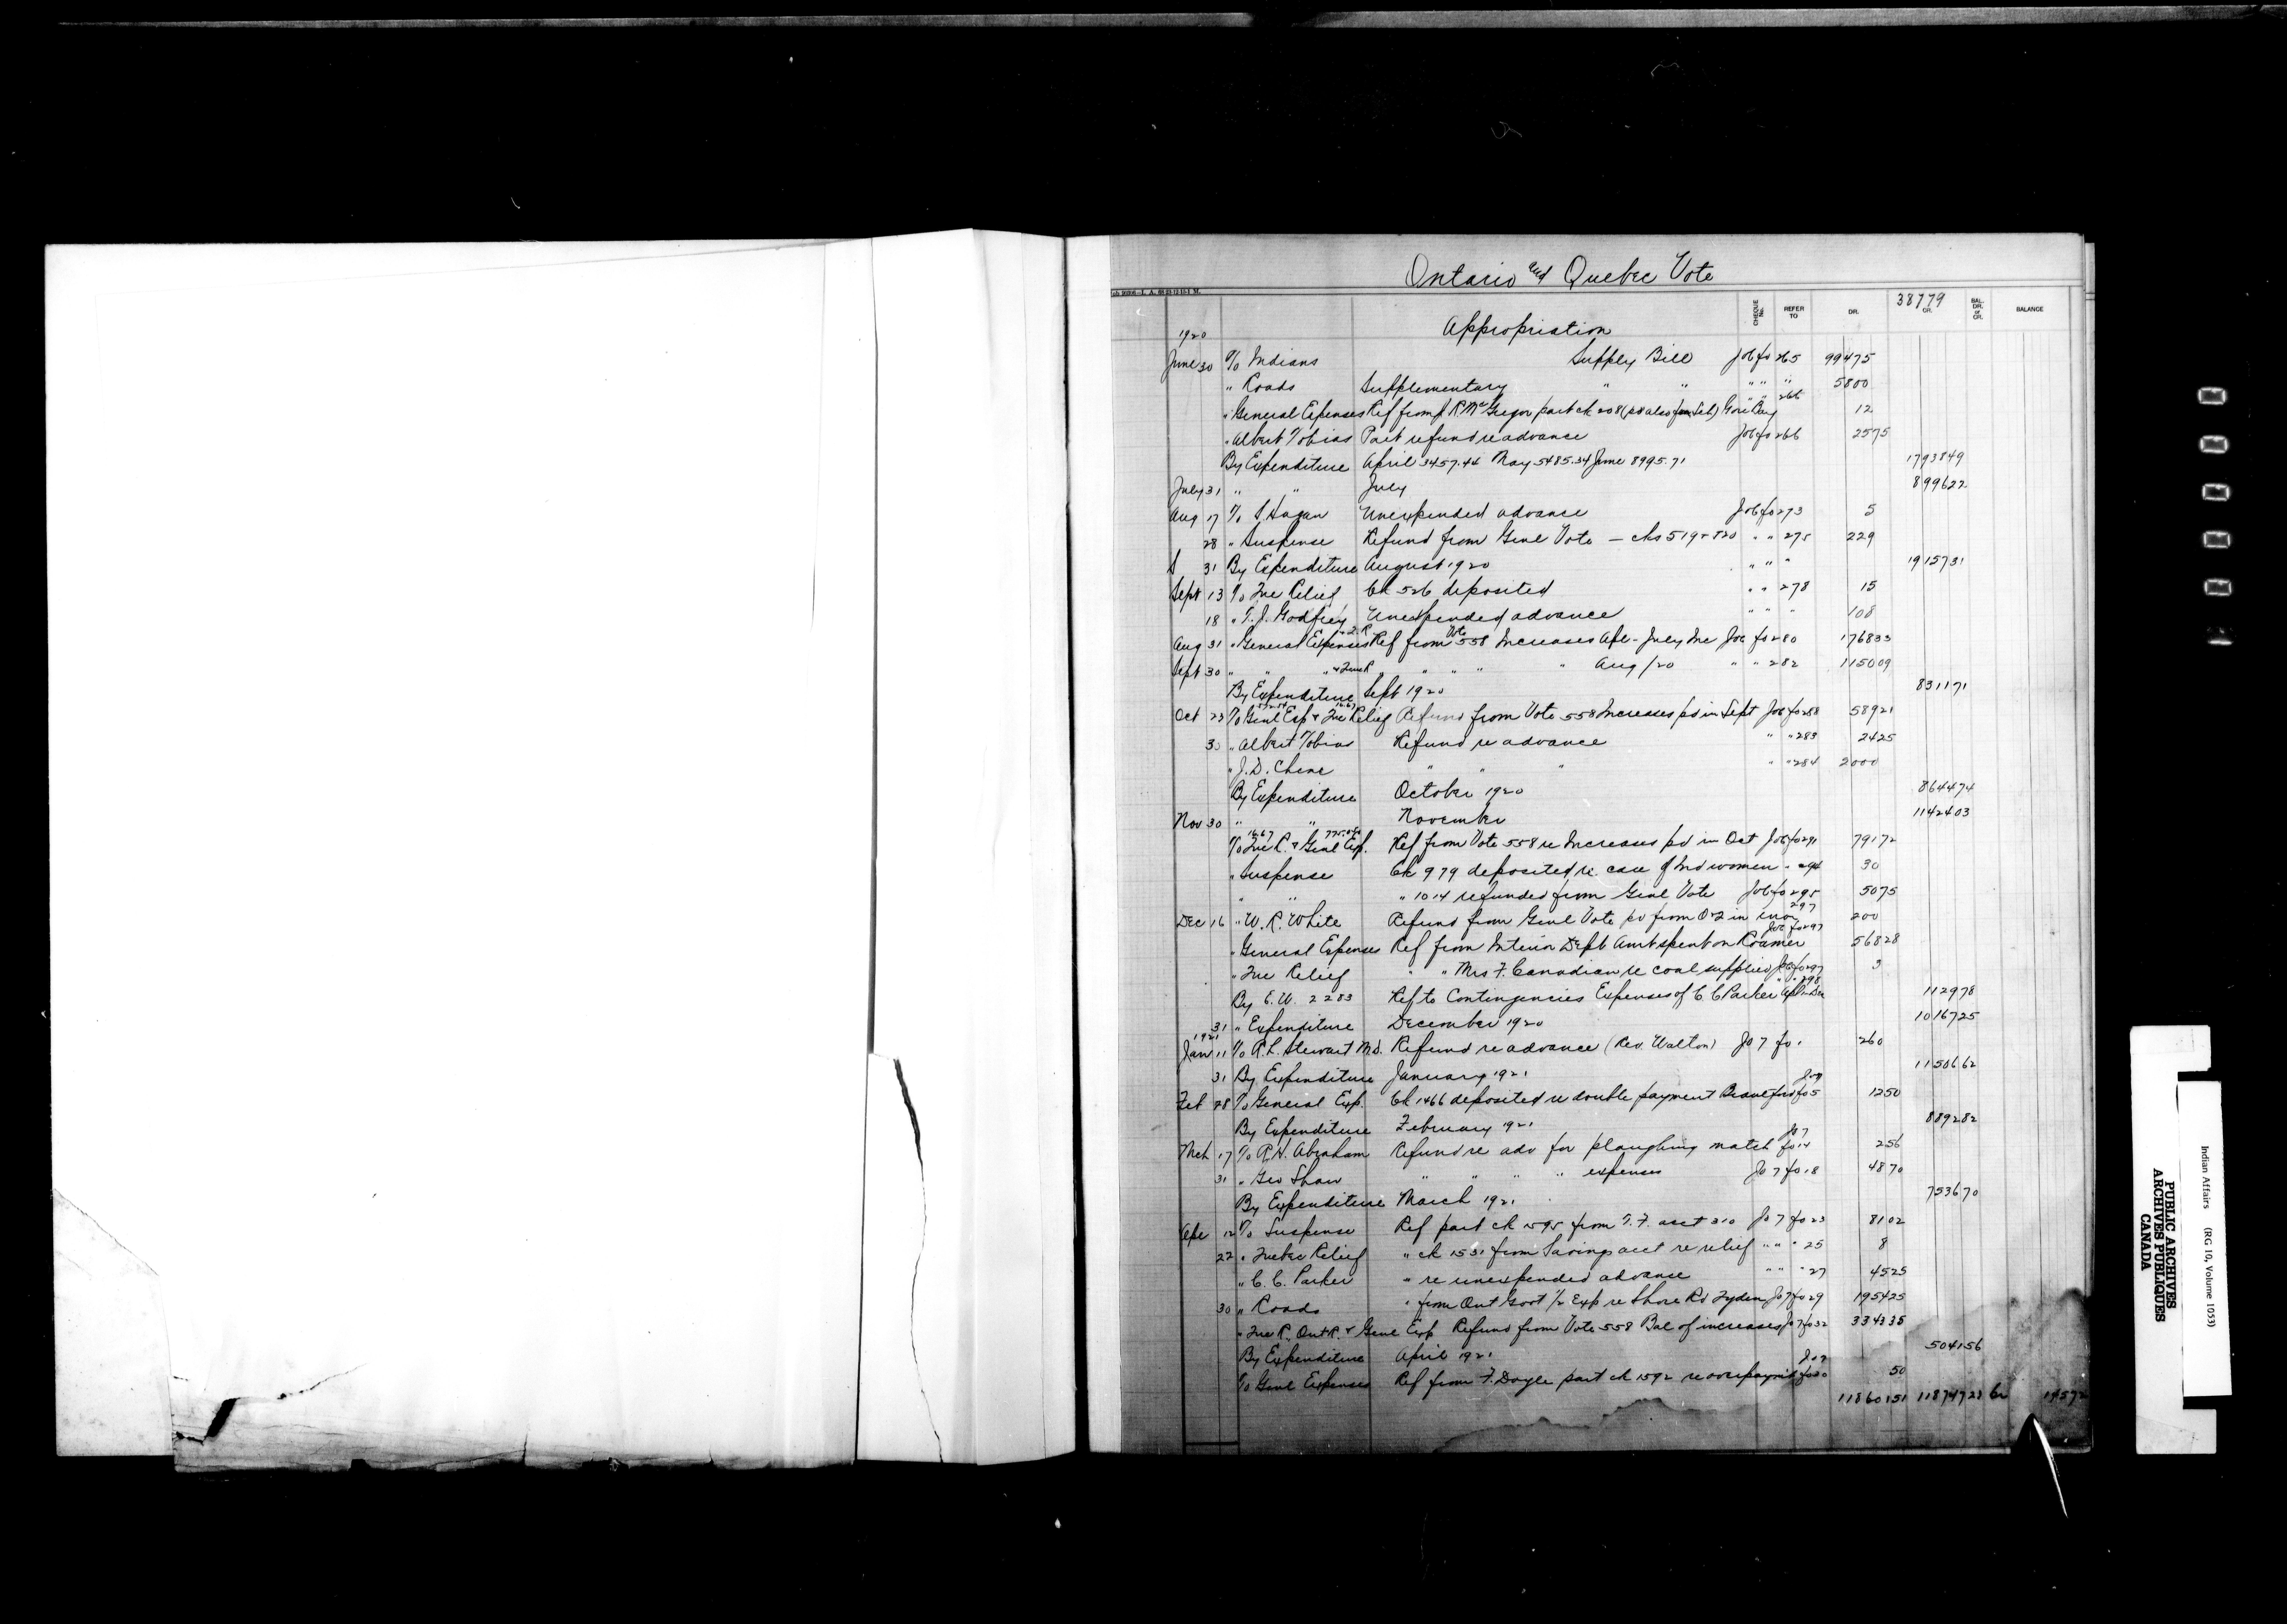 Ontario and Quebec Vote
38779
CHEQUE No. REFER TO DR. CR. BAL. DR. or CR. BALANCE
Appropriation
1920
June 30 To Indians Supply Bill Jo 6 fo 265 99475
" Roads Supplementary " " " " " 5800
" General Expenses Ref from J R McGregor part ck 208 Gore Bay " " 266 12
" Albert Tobias Part refund re advance Jo 6 fo 266 2575
By Expenditure April 3457.44 May 5485.34 June 8995.71 1793849
July 31 " " July 899622
Aug 17 To S. Hagan Unexpended advance Jo 6 fo 273 5
28 " Suspense Refund from Genl Vote — cks 519 + 520 " " 275 229
31 By Expenditure August 1920 " " " 1915731
Sept 13 To Que Relief Ck 526 deposited " " 278 15
18 " T. J. Godfrey Unexpended advance " " " 108
Aug 31 " General Expenses + Q. R. Ref from Vote 558 Increases Apl - July Inc Jo 6 fo 280 176833
Sept 30 " " " + Que R " " " " " Aug /20 " " 282 115009
By Expenditure Sept 1920 831171
Oct 23 To Genl Exp + Que Relief 16.67 Refund from Vote 558 Increases pd in Sept Jo 6 fo 288 58921
30 " Albert Tobias Refund re advance " " 283 2425
" J. D. Chene " " " " " 284 2000
By Expenditure October 1920 864474
Nov 30 " " November 1142403
To Que R. + Genl Exp. 16.67 Ref from Vote 558 re Increases pd in Oct Jo 6 fo 291 79172
" Suspense Ck 979 deposited re. care of Ind women " 294 30
" " " 1014 refunded from Genl Vote Jo 6 fo 295 5075
Dec 16 " W. R. White Refund from Genl Vote pd from O-Q in 297 200
" General Expenses Ref from Interior Dept Amt spent on Jo 6 fo 297 56828
" Que Relief " " Mrs F. Canadian re coal supplied Jo 6 fo 297 3
By C. W. 2283 Ref to Contingencies Expenses of C C Parker Apl - Dec " " 298 112978
31 " Expenditure December 1920 1016725
1921
Jan 11 To R. L. Stewart M.D. Refund re advance (Rev. Walton) Jo 7 fo 1 260
31 By Expenditure January 1921 1150662
Feb 28 To General Exp. Ck 1466 deposited re double payment Brantford Jo 7 fo 5 1250
By Expenditure February 1921 889282
Mch 17 To R. H. Abraham Refund re adv for ploughing match Jo 7 fo 14 256
31 " Geo Shaw " " " " expenses Jo 7 fo 18 4870
By Expenditure March 1921 753670
Apr 12 To Suspense Ref part ck 1595 from T. F. acct 310 Jo 7 fo 23 8102
22 " Quebec Relief " ck 1531 from Savings acct re relief " " " 25 8
" C. C. Parker " re unexpended advance " " " 27 4525
30 " Roads " from Ont Govt 1/2 Exp re Shore Rd Jo 7 fo 29 195425
" Que R., Ont R. + Genl Exp Refund from Vote 558 Bal of increases Jo 7 fo 32 334335
By Expenditure April 1921 504156
To Genl Expenses Ref from F. Doyle part ck 1592 re overpaym't Jo 7 fo 30 50
11860151 11874723 Cr 14572
PUBLIC ARCHIVES
ARCHIVES PUBLIQUES
CANADA
Indian Affairs (RG 10, Volume 1053)